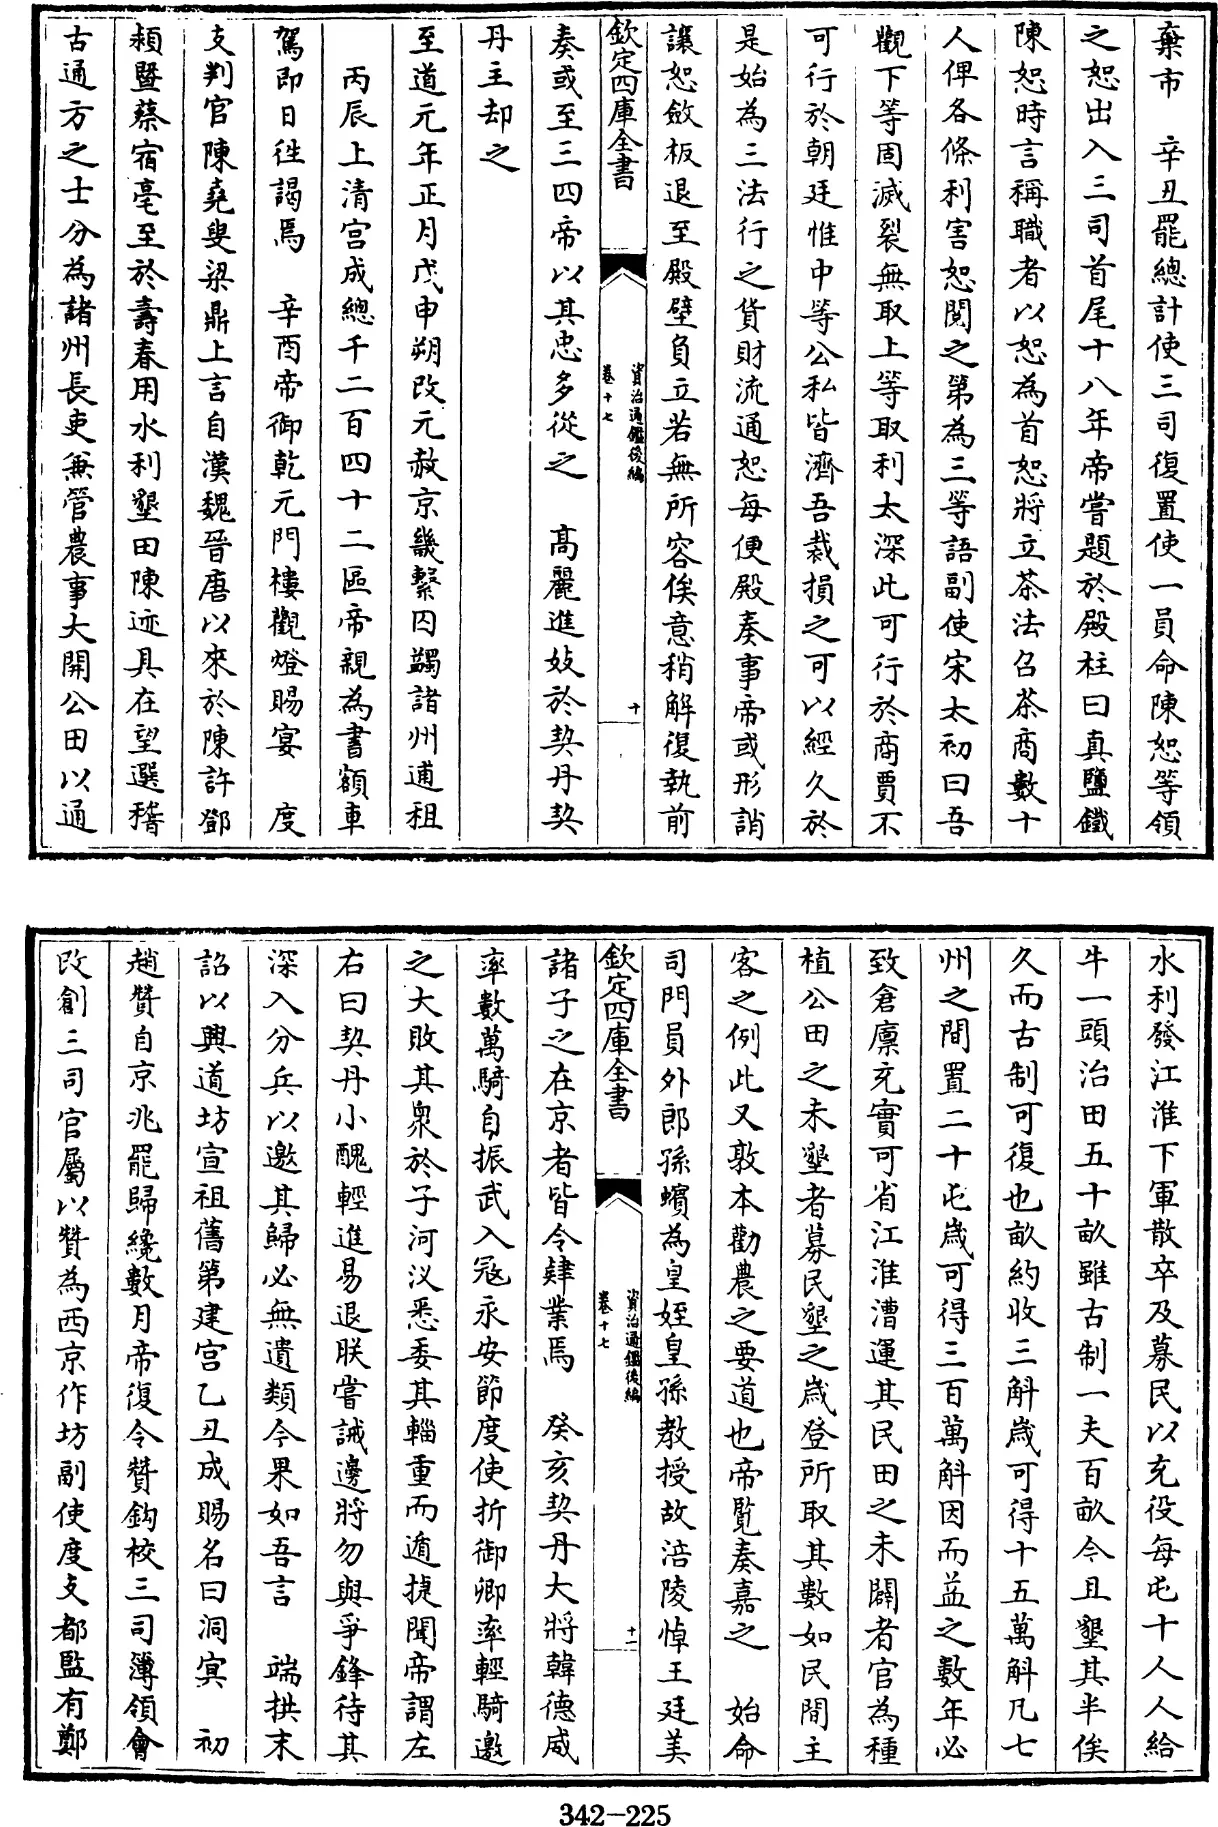 棄市　辛丑罷總計使三司復置使一員命陳恕等領
之恕出入三司首尾十八年帝嘗題於殿柱曰真鹽鐵
陳恕時言稱職者以恕為首恕將立茶法召茶商數十
人俾各條利害恕閱之第為三等語副使宋太初曰吾
觀下等固滅裂無取上等取利太深此可行於商賈不
可行於朝廷惟中等公私皆濟吾裁損之可以經久於
是始為三法行之貨財流通恕每便殿奏事帝或形誚
讓恕斂板退至殿壁負立若無所容俟意稍解復執前
欽定四庫全書
資治通鑑後編
卷十七
十
奏或至三四帝以其忠多從之　高麗進妓於契丹契
丹主却之
至道元年正月戊申朔改元赦京畿繫囚蠲諸州逋租
丙辰上清宮成總千二百四十二區帝親為書額車
駕即日往謁焉　辛酉帝御乾元門樓觀燈賜宴　度
支判官陳堯叟梁鼎上言自漢魏晉唐以來於陳許鄧
潁暨蔡宿亳至於壽春用水利墾田陳迹具在望選稽
古通方之士分為諸州長吏兼管農事大開公田以通
水利發江淮下軍散卒及募民以充役每屯十人人給
牛一頭治田五十畝雖古制一夫百畝今且墾其半俟
久而古制可復也畝約收三斛歲可得十五萬斛凡七
州之間置二十屯歲可得三百萬斛因而益之數年必
致倉廪充實可省江淮漕運其民田之未闢者官為種
植公田之未墾者募民墾之歲登所取其數如民間主
客之例此又敦本勸農之要道也帝覽奏嘉之　始命
司門員外郎孫蠙為皇姪皇孫教授故涪陵悼王廷美
欽定四庫全書
資治通鑑後編
卷十七
十一
諸子之在京者皆令肄業焉　癸亥契丹大將韓德威
率數萬騎自振武入寇永安節度使折御卿率輕騎邀
之大敗其衆於子河汊悉委其輜重而遁捷聞帝謂左
右曰契丹小醜輕進易退朕嘗誡邊將勿與爭鋒待其
深入分兵以邀其歸必無遺類今果如吾言　端拱末
詔以興道坊宣祖舊第建宮乙丑成賜名曰洞真　初
趙贊自京兆罷歸纔數月帝復令贊鈎校三司簿領會
改創三司官屬以贊為西京作坊副使度支都監有鄭
342-225